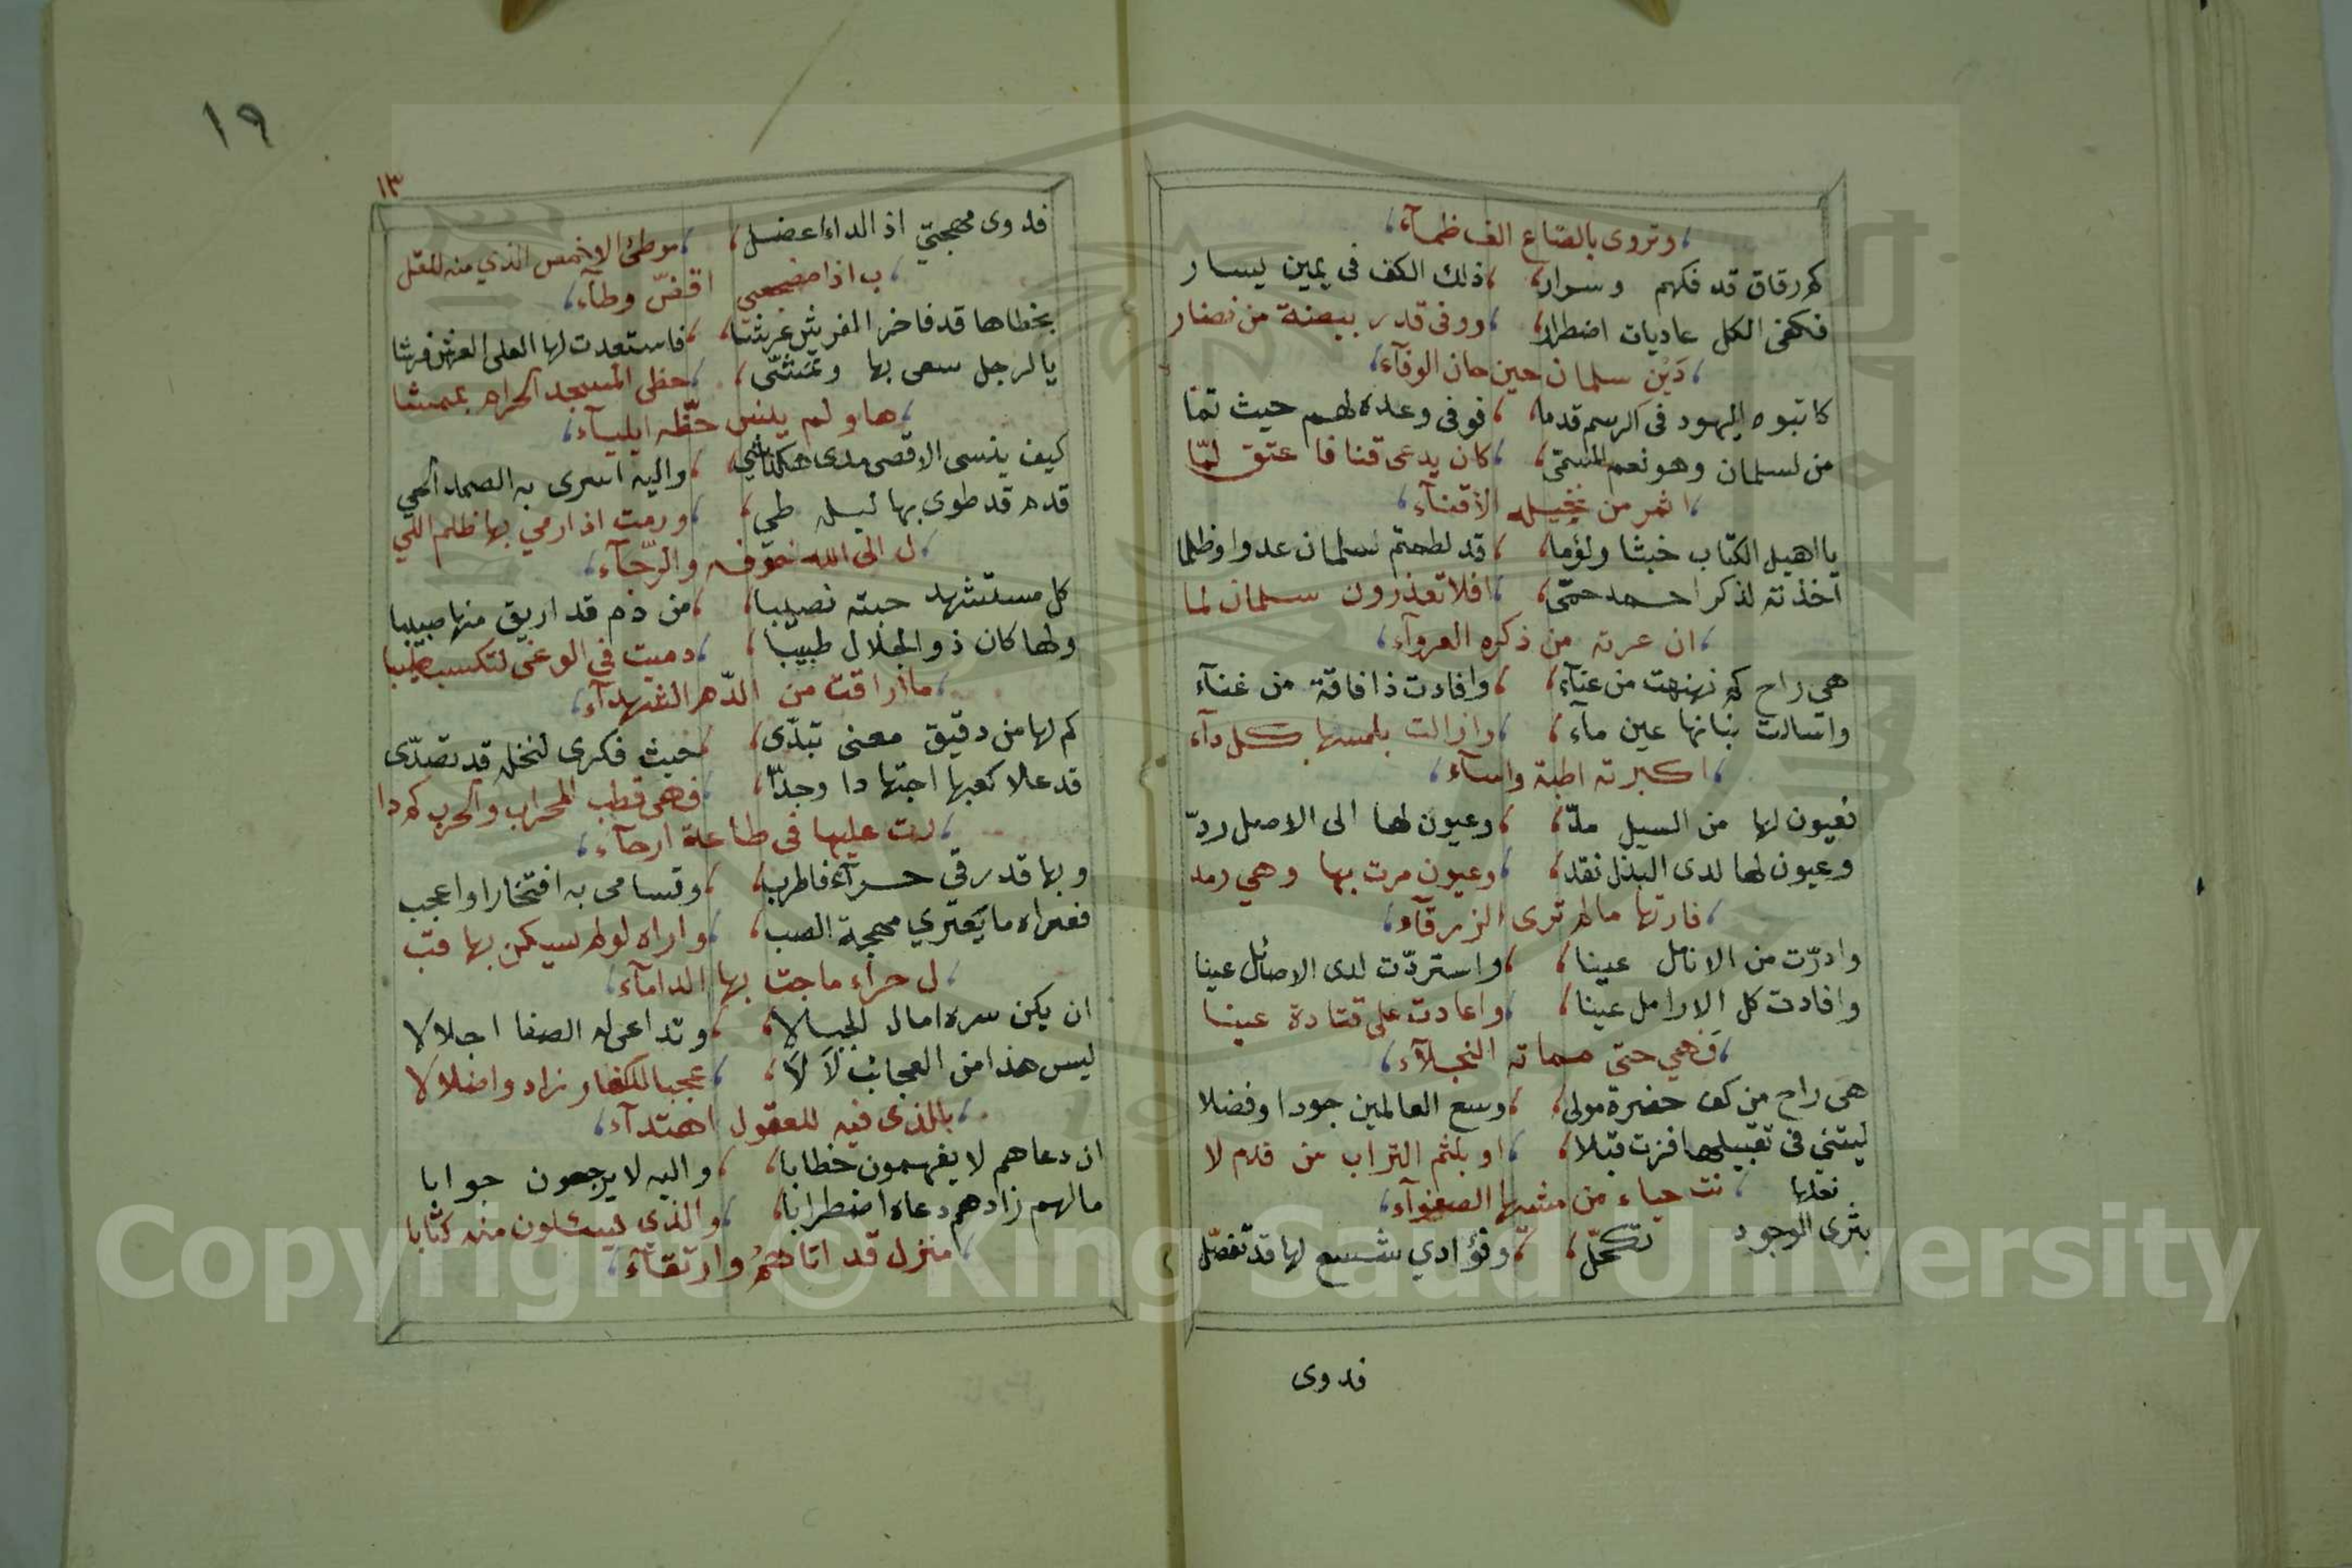 وتروى بالصاع الف ظمآء
كم رقاق قد فكهم وسرار ذلك الكف فى يمين يسار
فكفى الكل عاديات اضطرار ووفى قدر بيضة من نضار
دَيْن سلمان حين حان الوفآء
كاتبوه اليهود فى الرسم قدما فوفى وعده لهم حيث تمّا
من لسلمان وهو نعم المسمّى كان يدعى قنا فاعتق لمّا
اثمر من نخيله الاقنآء
يا اهيل الكتاب خبثا ولؤما قد لطمتم سلمان عدوا وظلما
اخذته لذكر احمد حمّى افلا تعذرون سلمان لما
ان عرته من ذكره العروآء
هى راح كم نهنهت من عنآء وافادت ذا فاقة من غنآء
واسالت بنانها عين مآء وازالت بلمسها كل دآء
اكبرته اطبة واسآء
فعيون لها من السيل مدّ وعيون لها الى الاصل ردّ
وعيون لها لدى البذل نقد وعيون مرت بها وهي رمد
فارتها مالم ترى الزرقآء
وادرّت من الانامل عينا واستردّت لدى الاصائل عينا
وافادت كل الارامل عينا واعادت على قتادة عينا
فهي حتى مماته النجلآء
هى راح من كف حضرة مولى وسع العالمين جودا وفضلا
ليتني فى تقبيلها فزت قبلا او بلثم التراب من قدم لا
نت حياء من مشيها الصفوآء
نعلها
بثرى الوجود تكحّل وفؤادي شسع لها قد تفصّل
فدوى
١٩
١٣
فدوى مهجتي اذ الداء اعضل موطئ الاخمص الذي منه للقل
ب اذا مضجعي اقضّ وطآء
بخطاها قد فاخر الفرش عرشا فاستعدت لها العلى العرش فرشا
يا لرجل سعى بها وتمشّى حظى المسجد الحرام بممشا
ها ولم ينس حظّه ايلياء
كيف ينسى الاقصى مدى واليه اسرى به الصمد الحي
قدم قد طوى بها ليله طي ورمت اذ ارمي بها ظلم اللي
ل الى الله خوفه والرّجآء
كل مستشهد حبته نصيبا من دم قد اريق منها صبيبا
ولها كان ذو الجلال طبيبا دميت في الوغى لتكسب طيبا
ما اراقت من الدّم الشهدآء
كم لها من دقيق معنى تبدّى حيث فكرى لنخله قد تصدّى
قد علا كعبها اجتهادا وجدّا فهى قطب المحراب والحرب كم دا
رت عليها فى طاعة ارحآء
وبها قد رقى حرآء فاطرب وتسامى به افتخارا واعجب
فعراه ما يعتري مهجة الصب واراه لو لم يسكن بها قب
ل حراء ماجت بها الدامآء
ان يكن سره امال الجبالا وتداعى له الصفا اجلالا
ليس هذا من العجائب لَا لَا عجبا للكفار زادوا ضلالا
بالذى فيه للعقول اهتدآء
ان دعاهم لا يفهمون خطابا واليه لا يرجعون جوابا
ما لهم زادهم دعاه اضطرابا والذي يسئلون منه كتابا
منزل قد اتاهُمُ وارتقآء
Copyright © King Saud University